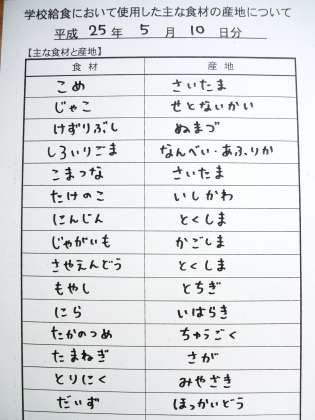 学校給食において使用した主な食材の産地について
平成 25 年 5 月 10 日分
【主な食材と産地】
食材 産地
こめ さいたま
じゃこ せとないかい
けずりぶし ぬまづ
しろいりごま なんべい・あふりか
こまつな さいたま
たけのこ いしかわ
にんじん とくしま
じゃがいも かごしま
さやえんどう とくしま
もやし とちぎ
にら いばらき
たかのつめ ちゅうごく
たまねぎ さが
とりにく みやざき
だいず ほっかいどう